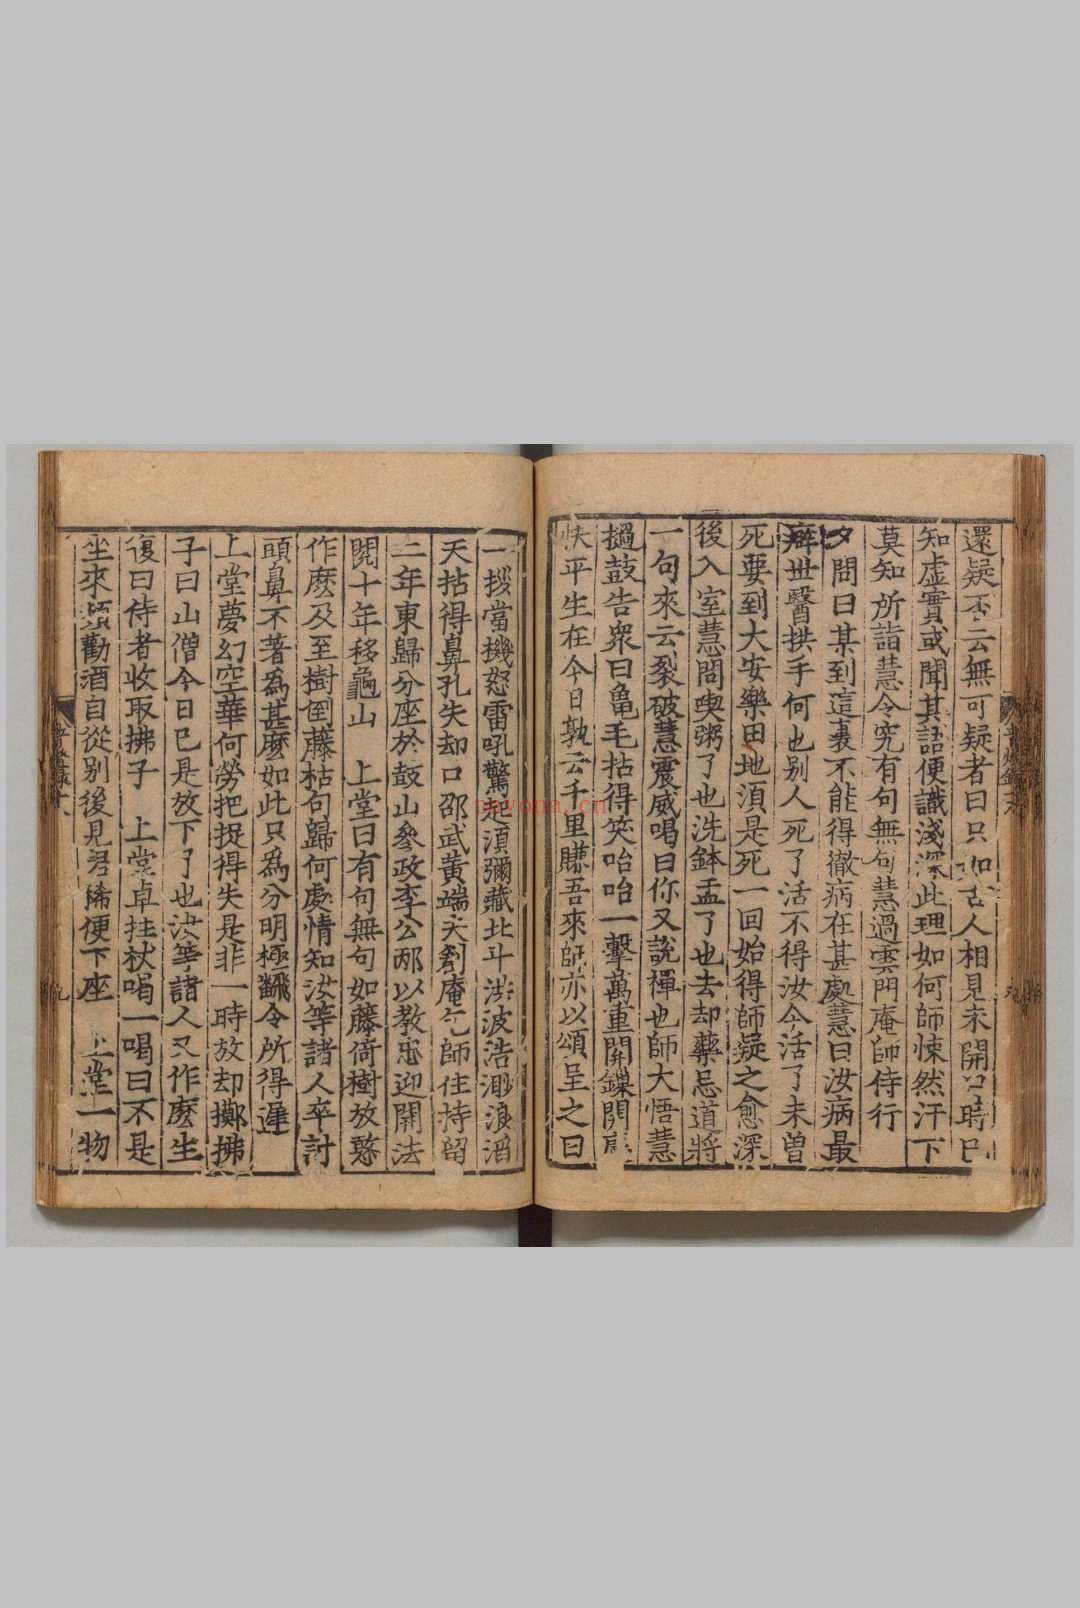 還疑否云無可疑者曰只如古人相見未開口時已
知虛實或聞其語便識淺深此理如何師悚然汗下
莫知所詣慧令究有句無句慧過雲門庵師侍行
夕問曰某到這裏不能得徹病在甚處慧曰汝病最
癖世醫拱手何也別人死了活不得汝今活了未曾
死要到大安樂田地須是死一回始得師疑之愈深
後入室慧問喫粥了也洗鉢盂了也去却藥忌道將
一句來云裂破慧震威喝曰你又說禪也師大悟慧
撾鼓告衆曰龜毛拈得笑咍咍一擊萬重關鏁開慶
快平生在今日孰云千里賺吾來師亦以頌呈之曰
一拶當機怒雷吼驚起須彌藏北斗洪波浩渺浪滔
天拈得鼻孔失却口邵武黃端夫創庵乞師住持留
三年東歸分座於鼓山參政李公邴以教忠迎開法
閱十年移龜山 上堂曰有句無句如藤倚樹放憨
作麽及至樹倒藤枯句歸何處情知汝等諸人卒討
頭鼻不著爲甚麽如此只爲分明極飜令所得遲
上堂夢幻空華何勞把捉得失是非一時放却擲拂
子曰山僧今日已是放下了也汝等諸人又作麽生
復曰侍者收取拂子 上堂卓拄杖喝一喝曰不是
坐來頻勸酒自從別後見君稀便下座 上堂一物
普燈錄十八
nayona.cn